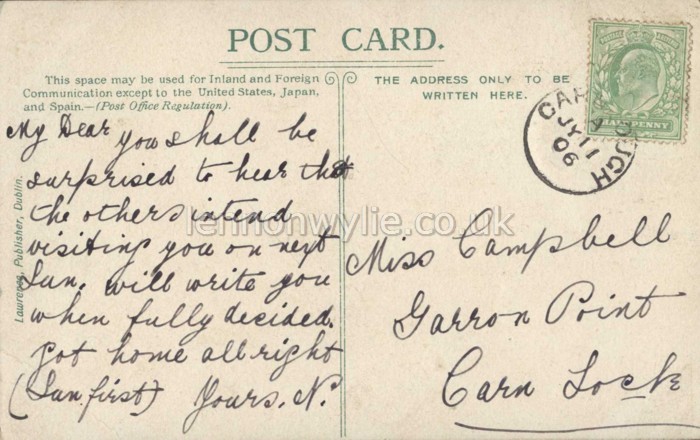 POST CARD.
This space may be used for Inland and Foreign
Communication except to the United States, Japan,
and Spain.—(Post Office Regulation).
My Dear you shall be
surprised to hear that
the others intend
visiting you on next
Sun. will write you
when fully decided.
got home all right
(Sun. first) Yours. N.
Lawrence, Publisher, Dublin.
THE ADDRESS ONLY TO BE
WRITTEN HERE.
HALFPENNY
JY 11
06
Miss Campbell
Garron Point
Carn Lock
lennonwylie.co.uk